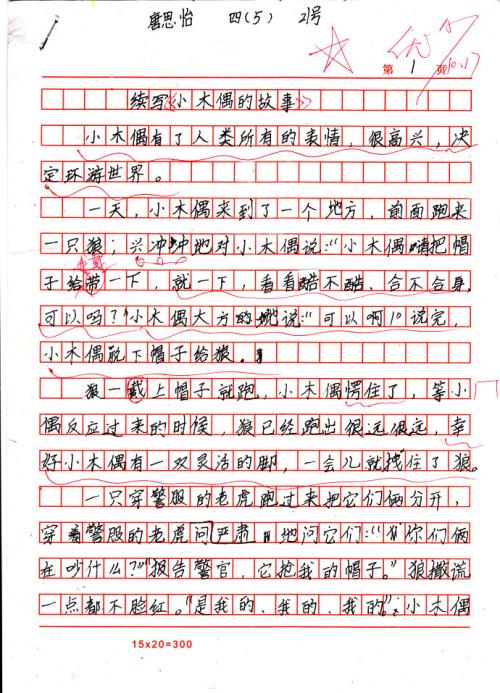 唐思怡 四(5) 21号
优
第 1 页
续写《小木偶的故事》
小木偶有了人类所有的表情，很高兴，决
定环游世界。
一天，小木偶来到了一个地方，前面跑来
一只狼；兴冲冲地对小木偶说：“小木偶请把帽
子给带一下，就一下，看看酷不酷、合不合身。
可以吗？”小木偶大方的说：“可以啊！”说完，
小木偶脱下帽子给狼。
狼一戴上帽子就跑，小木偶愣住了，等小
偶反应过来的时候，狼已经跑出很远很远，幸
好小木偶有一双灵活的脚，一会儿就找住了狼。
一只穿警服的老虎跑过来把它们俩分开，
穿着警服的老虎问严肃地问它们：“你们俩
在吵什么？”“报告警官，它抢我的帽子。”狼撒谎
一点都不脸红。“是我的、我的、我的”小木偶
15x20=300